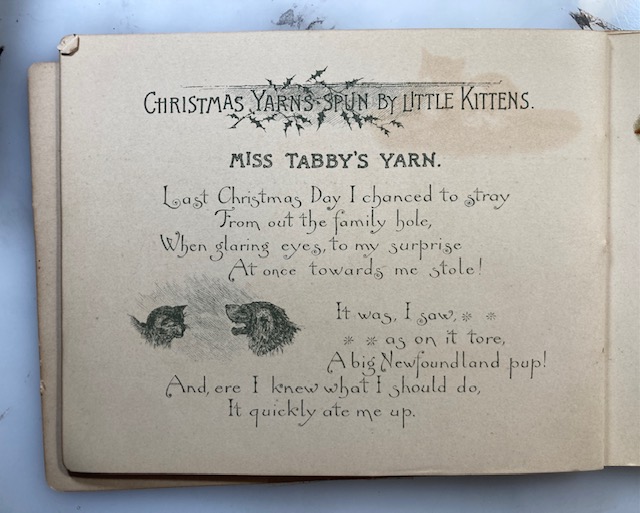 CHRISTMAS YARNS·SPUN BY LITTLE KITTENS.
MISS TABBY'S YARN.
Last Christmas Day I chanced to stray
From out the family hole,
When glaring eyes, to my surprise
At once towards me stole!
It was, I saw, * *
* * as on it tore,
A big Newfoundland pup!
And, ere I knew what I should do,
It quickly ate me up.